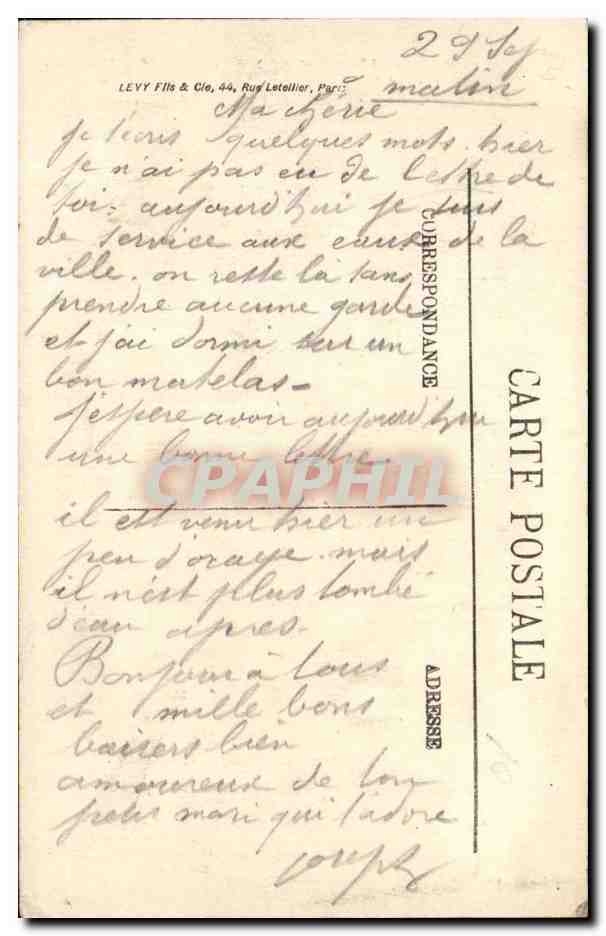 29 Sep
LEVY Fils & Cie, 44, Rue Letellier, Paris
matin
Ma chérie
je t'écris quelques mots. hier
je n'ai pas eu de lettre de
toi. aujourd'hui je suis
de service aux eaux de la
ville. on reste là sans
prendre aucune garde
et j'ai dormi sur un
bon matelas -
j'espère avoir aujourd'hui
une bonne lettre
il est venu hier un
peu d'orage. mais
il n'est plus tombé
d'eau apres.
Bonjour à tous
et mille bons
baisers bien
amoureux de ton
petit mari qui t'adore
joseph
CORRESPONDANCE
ADRESSE
CARTE POSTALE
CPAPHIL